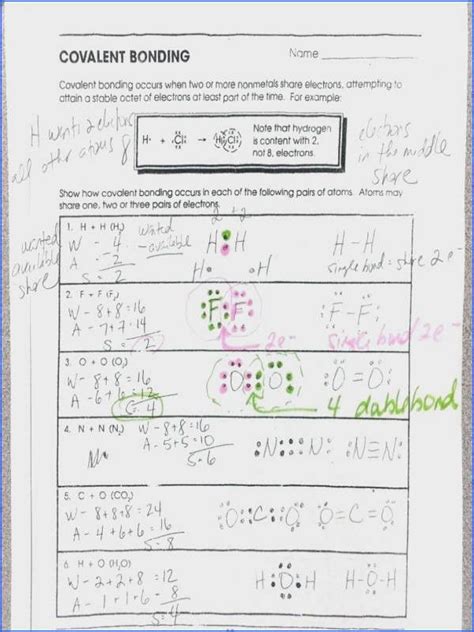 COVALENT BONDING
Name
Covalent bonding occurs when two or more nonmetals share electrons, attempting to
attain a stable octet of electrons at least part of the time. For example:
H wants 2 electrons
all other atoms 8
H· + ·Cl: → H:Cl:
Note that hydrogen
is content with 2,
not 8, electrons.
electrons
in the middle
share
Show how covalent bonding occurs in each of the following pairs of atoms. Atoms may
share one, two or three pairs of electrons.
wanted
available
share
1. H + H (H₂)
W - 4
A - 2
S = 2
wanted
- available
2 + 2
H : H
H· ·H
H - H
single bond = share 2 e⁻
2. F + F (F₂)
W - 8+8=16
A - 7+7=14
S = 2
F F
2e⁻
:F-F:
single bond 2e⁻
3. O + O (O₂)
W - 8+8=16
A - 6+6=12
S = 4
O O
4
O=O
double bond
4. N + N (N₂)
W - 8+8=16
A - 5+5=10
S = 6
:N:::N:
:N≡N:
5. C + O (CO₂)
W - 8+8+8=24
A - 4+6+6=16
S = 8
O::C::O
O=C=O
6. H + O (H₂O)
W - 2+2+8=12
A - 1+1+6=8
S = 4
H:O:H
H-O-H